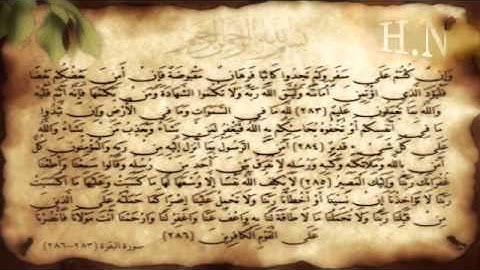 بسم الله الرحمن الرحيم
H.N
وَإِن كُنتُمْ عَلَى سَفَرٍ وَلَمْ تَجِدُوا كَاتِبًا فَرِهَانٌ مَقْبُوضَةٌ فَإِنْ أَمِنَ بَعْضُكُم بَعْضًا
فَلْيُؤَدِّ الَّذِي اؤْتُمِنَ أَمَانَتَهُ وَلْيَتَّقِ اللَّهَ رَبَّهُ وَلَا تَكْتُمُوا الشَّهَادَةَ وَمَن يَكْتُمْهَا فَإِنَّهُ آثِمٌ قَلْبُهُ
وَاللَّهُ بِمَا تَعْمَلُونَ عَلِيمٌ (٢٨٣) لِلَّهِ مَا فِي السَّمَوَاتِ وَمَا فِي الْأَرْضِ وَإِن تُبْدُوا
مَا فِي أَنفُسِكُمْ أَوْ تُخْفُوهُ يُحَاسِبْكُم بِهِ اللَّهُ فَيَغْفِرُ لِمَن يَشَاءُ وَيُعَذِّبُ مَن يَشَاءُ وَاللَّهُ
عَلَى كُلِّ شَيْءٍ قَدِيرٌ (٢٨٤) آمَنَ الرَّسُولُ بِمَا أُنزِلَ إِلَيْهِ مِن رَبِّهِ وَالْمُؤْمِنُونَ كُلٌّ
آمَنَ بِاللَّهِ وَمَلَائِكَتِهِ وَكُتُبِهِ وَرُسُلِهِ لَا نُفَرِّقُ بَيْنَ أَحَدٍ مِن رُسُلِهِ وَقَالُوا سَمِعْنَا وَأَطَعْنَا
غُفْرَانَكَ رَبَّنَا وَإِلَيْكَ الْمَصِيرُ (٢٨٥) لَا يُكَلِّفُ اللَّهُ نَفْسًا إِلَّا وُسْعَهَا لَهَا مَا كَسَبَتْ وَعَلَيْهَا مَا اكْتَسَبَتْ
رَبَّنَا لَا تُؤَاخِذْنَا إِن نَسِينَا أَوْ أَخْطَأْنَا رَبَّنَا وَلَا تَحْمِلْ عَلَيْنَا إِصْرًا كَمَا حَمَلْتَهُ عَلَى الَّذِينَ
مِن قَبْلِنَا رَبَّنَا وَلَا تُحَمِّلْنَا مَا لَا طَاقَةَ لَنَا بِهِ وَاعْفُ عَنَّا وَاغْفِرْ لَنَا وَارْحَمْنَا أَنتَ مَوْلَانَا فَانصُرْنَا
عَلَى الْقَوْمِ الْكَافِرِينَ (٢٨٦)
سورة البقرة (٢٨٣-٢٨٦)